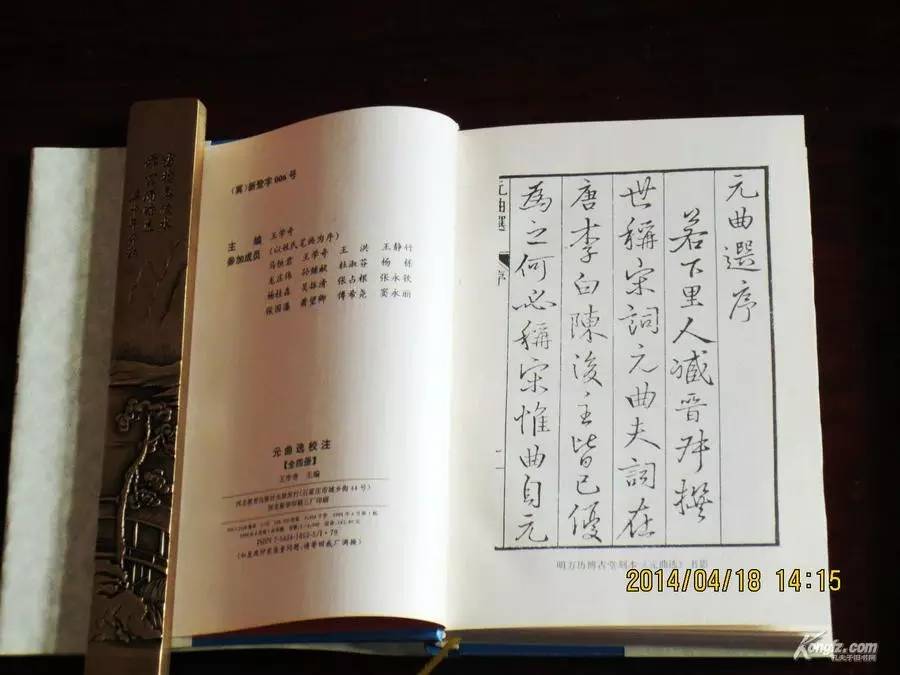 (冀)新登字006号
主 编 王学奇
参加成员 (以姓氏笔画为序)
马恒君 王学奇 王 洪 王静竹
龙庄伟 孙继献 杜淑芬 杨 栋
杨桂森 吴振清 张占根 张永钦
张国藩 黄望卿 傅希尧 窦永丽
元曲选校注
【全四册】
王学奇 主编
河北教育出版社出版发行(石家庄市城乡街44号)
(如发现印装质量问题,请寄回我厂调换)
元曲選序
若下里人臧晉叔撰
世稱宋詞元曲夫詞在
唐李白陳後主皆已優
為之何必稱宋惟曲自元
元曲選 序
明万历博古堂刻本《元曲选》书影
2014/04/18 14:15
Kongfz.com
孔夫子旧书网